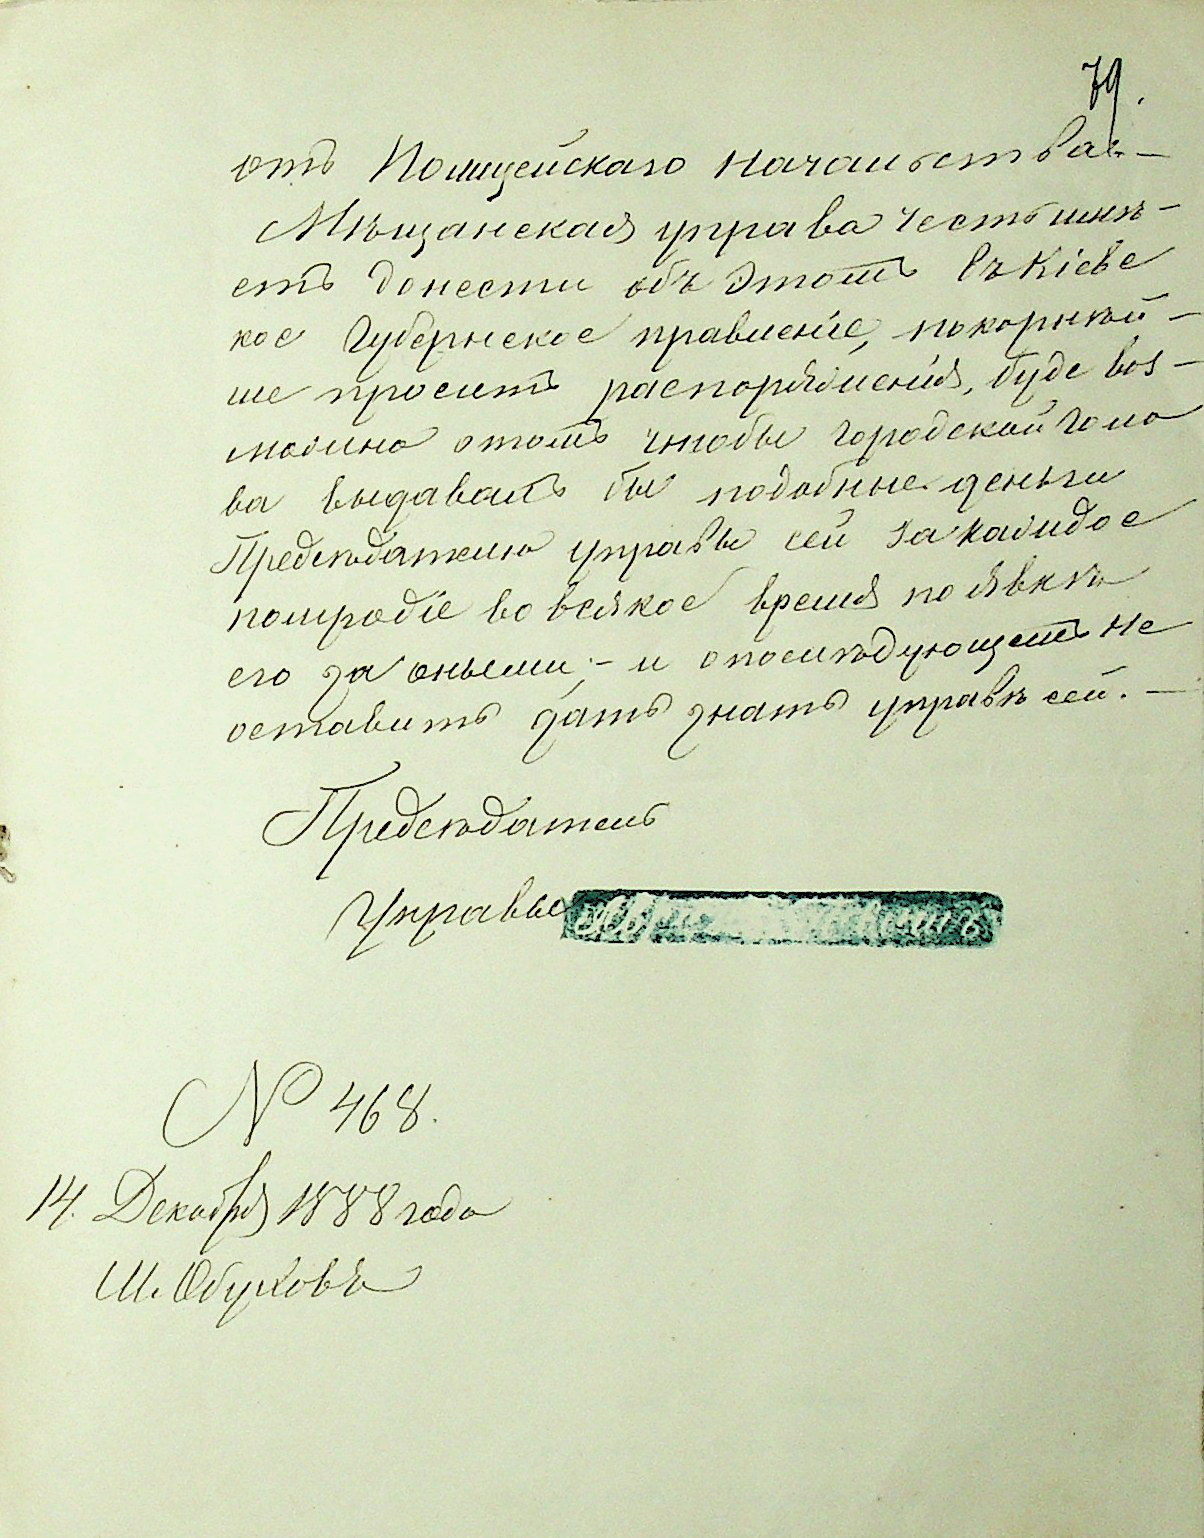 79.
отъ Полицейскаго начальства. —
Мѣщанская управа честь имѣ-
етъ донести объ этомъ въ Кіевс
кое Губернское правленіе, покорнѣй-
ше проситъ распоряженія, буде воз-
можно отомъ чтобы городской голо
ва выдавалъ бы подобные деньги
Предсѣдателю управы сей за каждое
полугодіе во всякое время по явкѣ
его за оными, — и опослѣдующемъ не
оставить дать знать управѣ сей. —
Предсѣдатель
Управы
№ 468.
14. Декабря 1888 года
М. Обуховъ